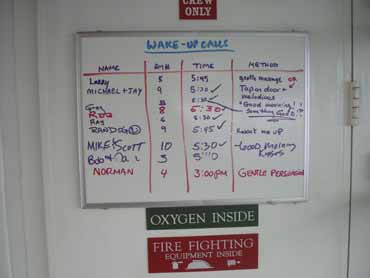 CREW
ONLY
WAKE-UP CALLS
NAME RM# TIME METHOD
Larry 5 5:45 gentle massage or
MICHAEL + JAY 9 5:30 ✓ Tap on door +
melodious
Greg 8 5:30 ✓ "Good morning!"
Rob something
Ray 6 5:30 ✓
9 5:45 ✓ me up
MIKE & SCOTT 10 5:30 ✓ Good Morning
Kisses
Bob + 3
NORMAN 4 3:00pm GENTLE PERSUASION
OXYGEN INSIDE
FIRE FIGHTING
EQUIPMENT INSIDE